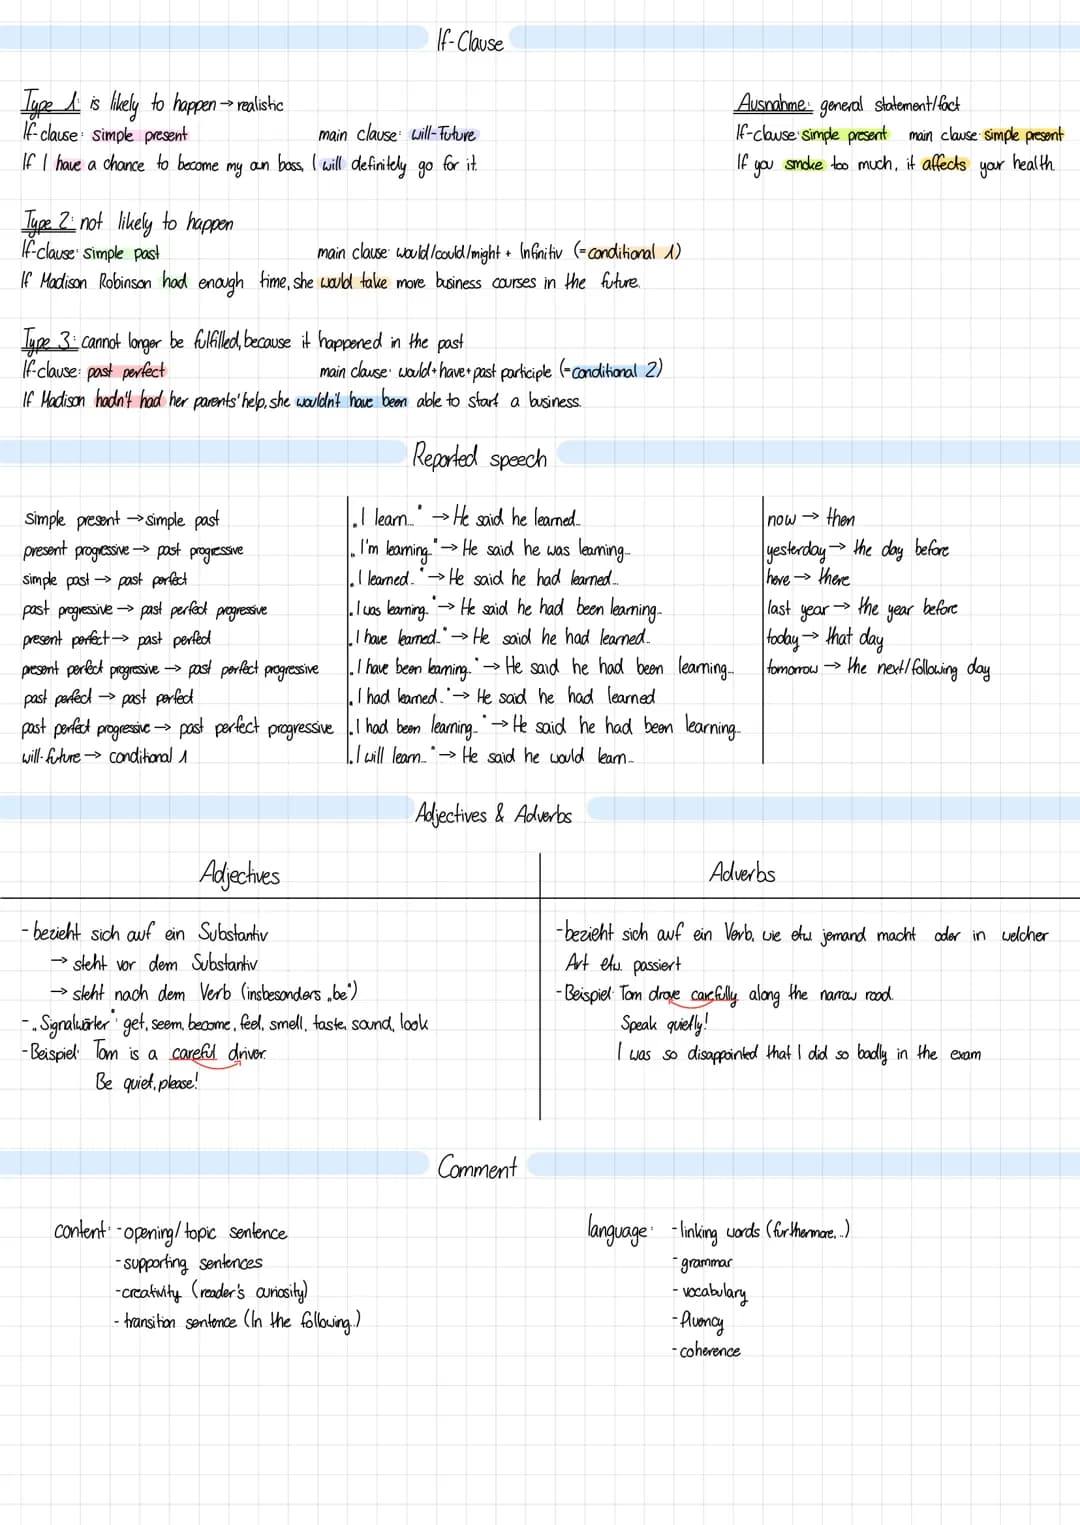 If-Clause
Type 1: is likely to happen → realistic
If-clause: simple present main clause: will-Future
If I have a chance to become my own boss, I will definitely go for it.
Ausnahme: general statement/fact
If-clause: simple present main clause: simple present
If you smoke too much, it affects your health.
Type 2: not likely to happen
If-clause: simple past main clause: would/could/might + Infinitiv (=conditional 1)
If Madison Robinson had enough time, she would take more business courses in the future.
Type 3: cannot longer be fulfilled, because it happened in the past
If-clause: past perfect main clause: would+have+past participle (=conditional 2)
If Madison hadn't had her parents' help, she wouldn't have been able to start a business.
Reported speech
simple present → simple past
present progressive → past progressive
simple past → past perfect
past progressive → past perfect progressive
present perfect → past perfect
present perfect progressive → past perfect progressive
past perfect → past perfect
past perfect progressive → past perfect progressive
will-future → conditional 1
„I learn..." → He said he learned...
„I'm learning." → He said he was learning...
„I learned.." → He said he had learned...
„I was learning." → He said he had been learning...
„I have learned.." → He said he had learned...
„I have been learning." → He said he had been learning...
„I had learned." → He said he had learned
„I had been learning.." → He said he had been learning...
„I will learn..." → He said he would learn...
now → then
yesterday → the day before
here → there
last year → the year before
today → that day
tomorrow → the next/following day
Adjectives & Adverbs
Adjectives
- bezieht sich auf ein Substantiv
→ steht vor dem Substantiv
→ steht nach dem Verb (insbesonders „be")
- „Signalwörter": get, seem, become, feel, smell, taste, sound, look
- Beispiel: Tom is a careful driver.
Be quiet, please!
Adverbs
- bezieht sich auf ein Verb, wie etw. jemand macht oder in welcher
Art etw. passiert
- Beispiel: Tom drove carefully along the narrow road.
Speak quietly!
I was so disappointed that I did so badly in the exam
Comment
content: - opening/topic sentence
- supporting sentences
- creativity (reader's curiosity)
- transition sentence (In the following..)
language: - linking words (furthermore,..)
- grammar
- vocabulary
- fluency
- coherence